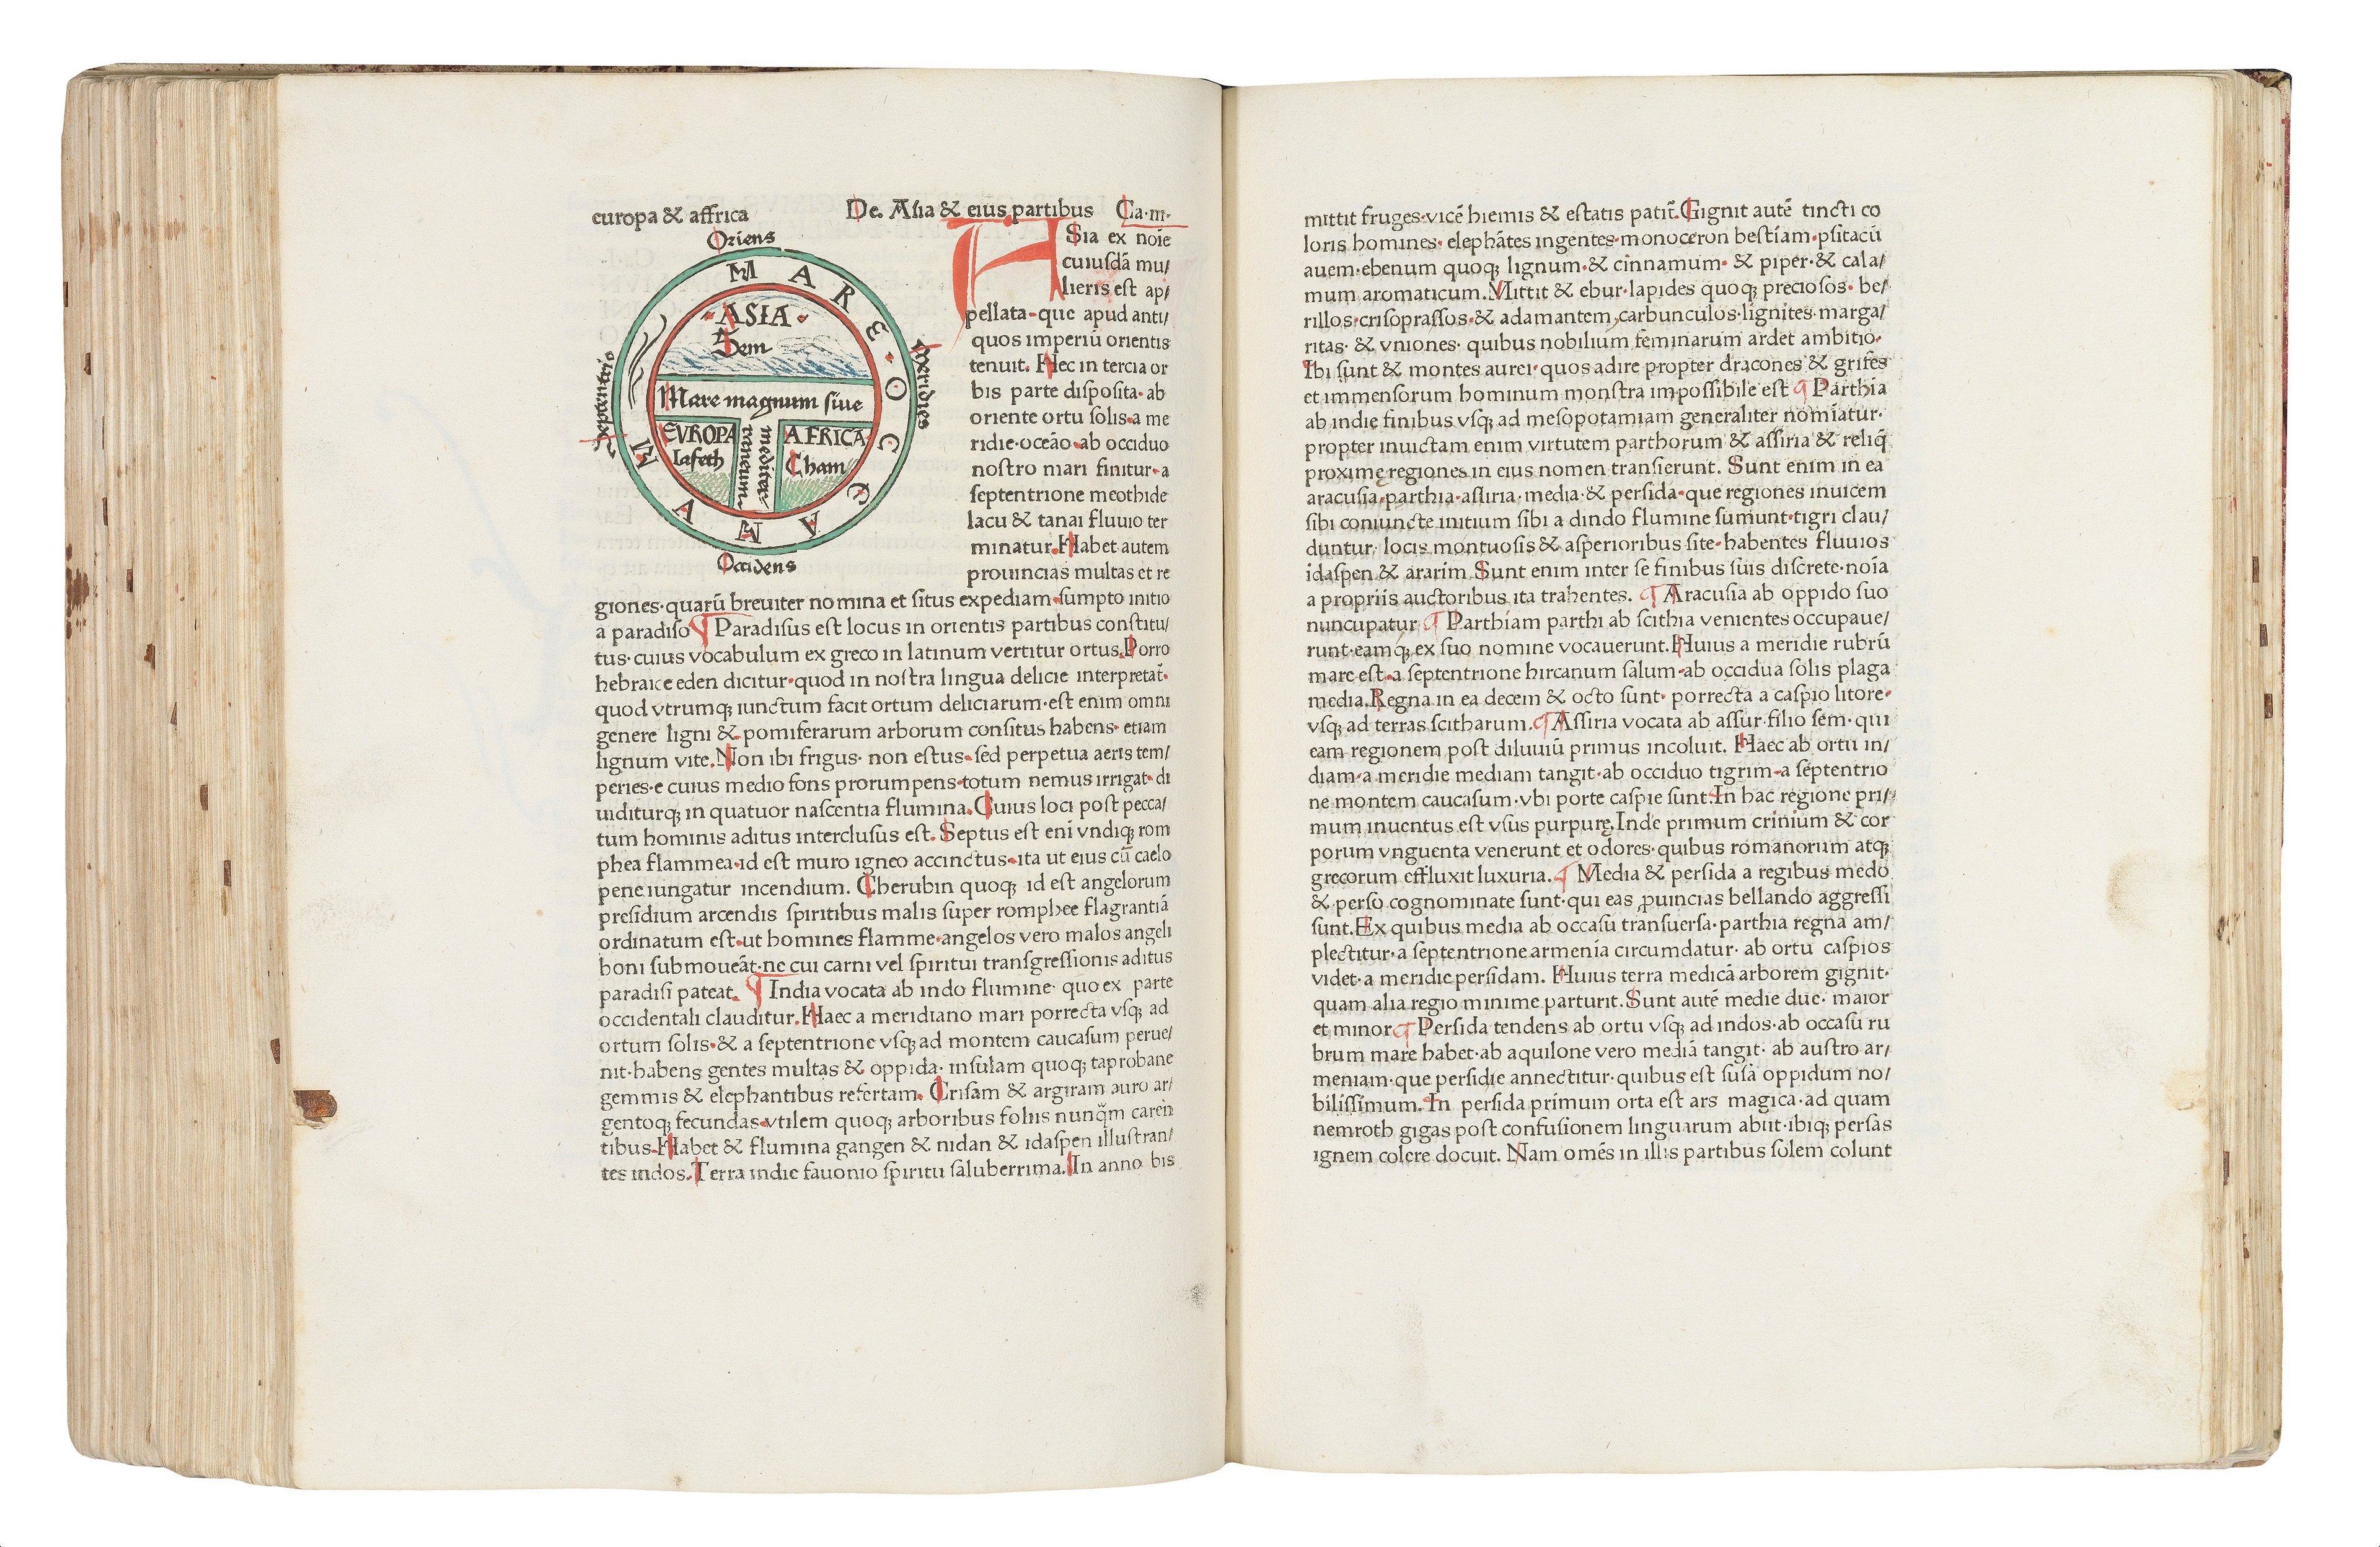 europa & affrica
De Asia & eius partibus Ca·m·
Oriens
MARE·OCCEANVM
Septentrio
Meridies
ASIA
Sem
Mare magnum siue
mediter-
raneum
EVROPA
Iafeth
AFRICA
Cham
Occidens
ASia ex noie
cuiusdā mu/
lieris est ap/
pellata·que apud anti/
quos imperiū orientis
tenuit. Hec in tercia or
bis parte disposita·ab
oriente ortu solis·a me
ridie·oceāo·ab occiduo
nostro mari finitur·a
septentrione meothide
lacu & tanai fluuio ter
minatur.Habet autem
prouincias multas et re
giones·quarū breuiter nomina et situs expediam·sumpto initio
a paradiso ¶ Paradisus est locus in orientis partibus constitu/
tus·cuius vocabulum ex greco in latinum vertitur ortus.Porro
hebraice eden dicitur·quod in nostra lingua delicie interpretat̄·
quod vtrumqꝫ iunctum facit ortum deliciarum·est enim omni
genere ligni & pomiferarum arborum consitus habens· etiam
lignum vite.Non ibi frigus· non estus·sed perpetua aeris tem/
peries·e cuius medio fons prorumpens·totum nemus irrigat·di
uiditurqꝫ in quatuor nascentia flumina.Cuius loci post pecca/
tum hominis aditus interclusus est. Septus est eni vndiqꝫ rom
phea flammea·id est muro igneo accinctus·ita ut eius cū caelo
pene iungatur incendium. Cherubin quoqꝫ id est angelorum
presidium arcendis spiritibus malis super romphee flagrantiā
ordinatum est·ut homines flamme·angelos vero malos angeli
boni submoueāt·ne cui carni vel spiritui transgressionis aditus
paradisi pateat. ¶ India vocata ab indo flumine· quo ex parte
occidentali clauditur.Haec a meridiano mari porrecta vsqꝫ ad
ortum solis·& a septentrione vsqꝫ ad montem caucasum perue/
nit·habens gentes multas & oppida· insulam quoqꝫ taprobane
gemmis & elephantibus refertam. Crisam & argiram auro ar/
gentoqꝫ fecundas·vtilem quoqꝫ arboribus foliis nunq̄m caren
tibus·Habet & flumina gangen & nidan & idaspen illustran/
tes indos.Terra indie fauonio spiritu saluberrima.In anno bis
mittit fruges·vicē hiemis & estatis patit̄.Gignit autē tincti co
loris homines· elephātes ingentes·monoceron bestiam·psitacū
auem·ebenum quoqꝫ lignum·& cinnamum· & piper·& cala/
mum aromaticum.Mittit & ebur·lapides quoqꝫ preciosos· be/
rillos·crisoprassos·& adamantem·carbunculos·lignites·marga/
ritas· & vniones· quibus nobilium feminarum ardet ambitio·
Ibi sunt & montes aurei·quos adire propter dracones & grifes
et immensorum hominum monstra impossibile est ¶ Parthia
ab indie finibus vsqꝫ ad mesopotamiam generaliter nomīatur·
propter inuictam enim virtutem parthorum & assiria & reliq̄
proximę regiones in eius nomen transierunt. Sunt enim in ea
aracusia·parthia·assiria·media·& persida·que regiones inuicem
sibi coniuncte initium sibi a dindo flumine sumunt·tigri clau/
duntur· locis montuosis & asperioribus site·habentes fluuios
idaspen & ararim Sunt enim inter se finibus suis discrete·noīa
a propriis auctoribus ita trahentes. ¶ Aracusia ab oppido suo
nuncupatur ¶ Parthiam parthi ab scithia venientes occupaue/
runt·eamqꝫ ex suo nomine vocauerunt.Huius a meridie rubrū
mare est·a septentrione hircanum salum·ab occidua solis plaga
media.Regna in ea decem & octo sunt· porrecta a caspio litore·
vsqꝫ ad terras scitharum.¶ Assiria vocata ab assur·filio sem·qui
eam regionem post diluuiū primus incoluit. Haec ab ortu in/
diam·a meridie mediam tangit·ab occiduo tigrim·a septentrio
ne montem caucasum·vbi porte caspie sunt.In hac regione pri/
mum inuentus est vsus purpurę.Inde primum crinium & cor
porum vnguenta venerunt et odores·quibus romanorum atqꝫ
grecorum effluxit luxuria. ¶ Media & persida a regibus medo
& perso cognominate sunt·qui eas ꝓuincias bellando aggressi
sunt.Ex quibus media ab occasu transuersa·parthia regna am/
plectitur·a septentrione armenia circumdatur· ab ortu caspios
videt·a meridie persidam. Huius terra medicā arborem gignit·
quam alia regio minime parturit.Sunt autē medie due· maior
et minor ¶ Persida tendens ab ortu vsqꝫ ad indos·ab occasu ru
brum mare habet·ab aquilone vero mediā tangit· ab austro ar/
meniam·que persidie annectitur·quibus est susa oppidum no/
bilissimum. In persida primum orta est ars magica·ad quam
nemroth gigas post confusionem linguarum abiit·ibiqꝫ persas
ignem colere docuit. Nam omēs in illis partibus solem colunt